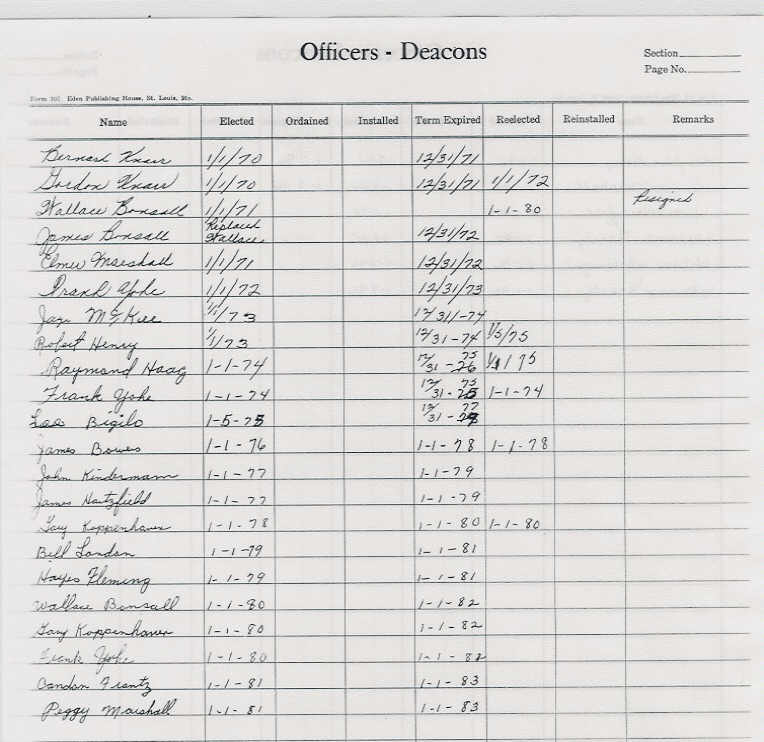 Officers - Deacons
Section
Page No.
Form 102 Eden Publishing House, St. Louis, Mo.
Name Elected Ordained Installed Term Expired Reelected Reinstalled Remarks
Bernard Knarr 1/1/70 12/31/71
Gordon Knarr 1/1/70 12/31/71 1/1/72
Wallace Bonsall 1/1/71 1-1-80 Resigned
James Bonsall Replaced Wallace 12/31/72
Elmer Marshall 1/1/71 12/31/72
Frank Yohe 1/1/72 12/31/73
McKee 1/1/73 12/31/-74
Robert Henry 1/1/73 12/31-74 1/5/75
Raymond Haag 1-1-74 12/31-75 1/1/75
Frank Yohe 1-1-74 12/31-75 1-1-74
Leo Bigilo 1-5-75 12/31-77
James Bowes 1-1-76 1-1-78 1-1-78
John Kindermann 1-1-77 1-1-79
James Hartzfield 1-1-77 1-1-79
Gary Koppenhaver 1-1-78 1-1-80 1-1-80
Bill Landon 1-1-79 1-1-81
Hayes Fleming 1-1-79 1-1-81
Wallace Bonsall 1-1-80 1-1-82
Gary Koppenhaver 1-1-80 1-1-82
Frank Yohe 1-1-80 1-1-82
Frantz 1-1-81 1-1-83
Peggy Marshall 1-1-81 1-1-83